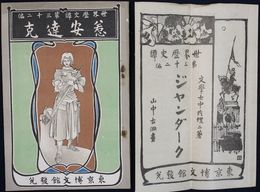 世界歴史譚第三十二編
惹安達克
東京博文館發兌
世界歴史譚
第三十二編
文學士中内理二著
ジャンダーク
山中古洞畫
東京博文館發兌